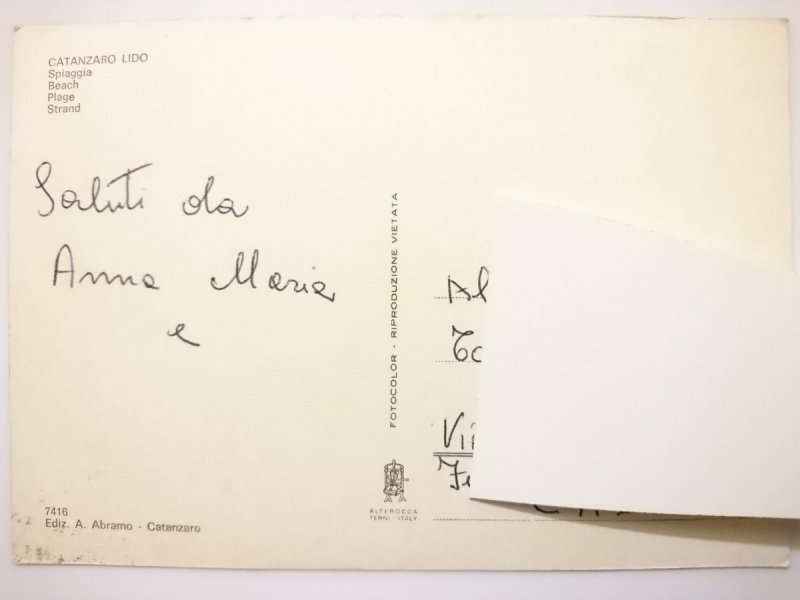 CATANZARO LIDO
Spiaggia
Beach
Plage
Strand
Saluti da
Anna Maria
e
FOTOCOLOR - RIPRODUZIONE VIETATA
7416
Ediz. A. Abramo - Catanzaro
ALTEROCCA
TERNI - ITALY